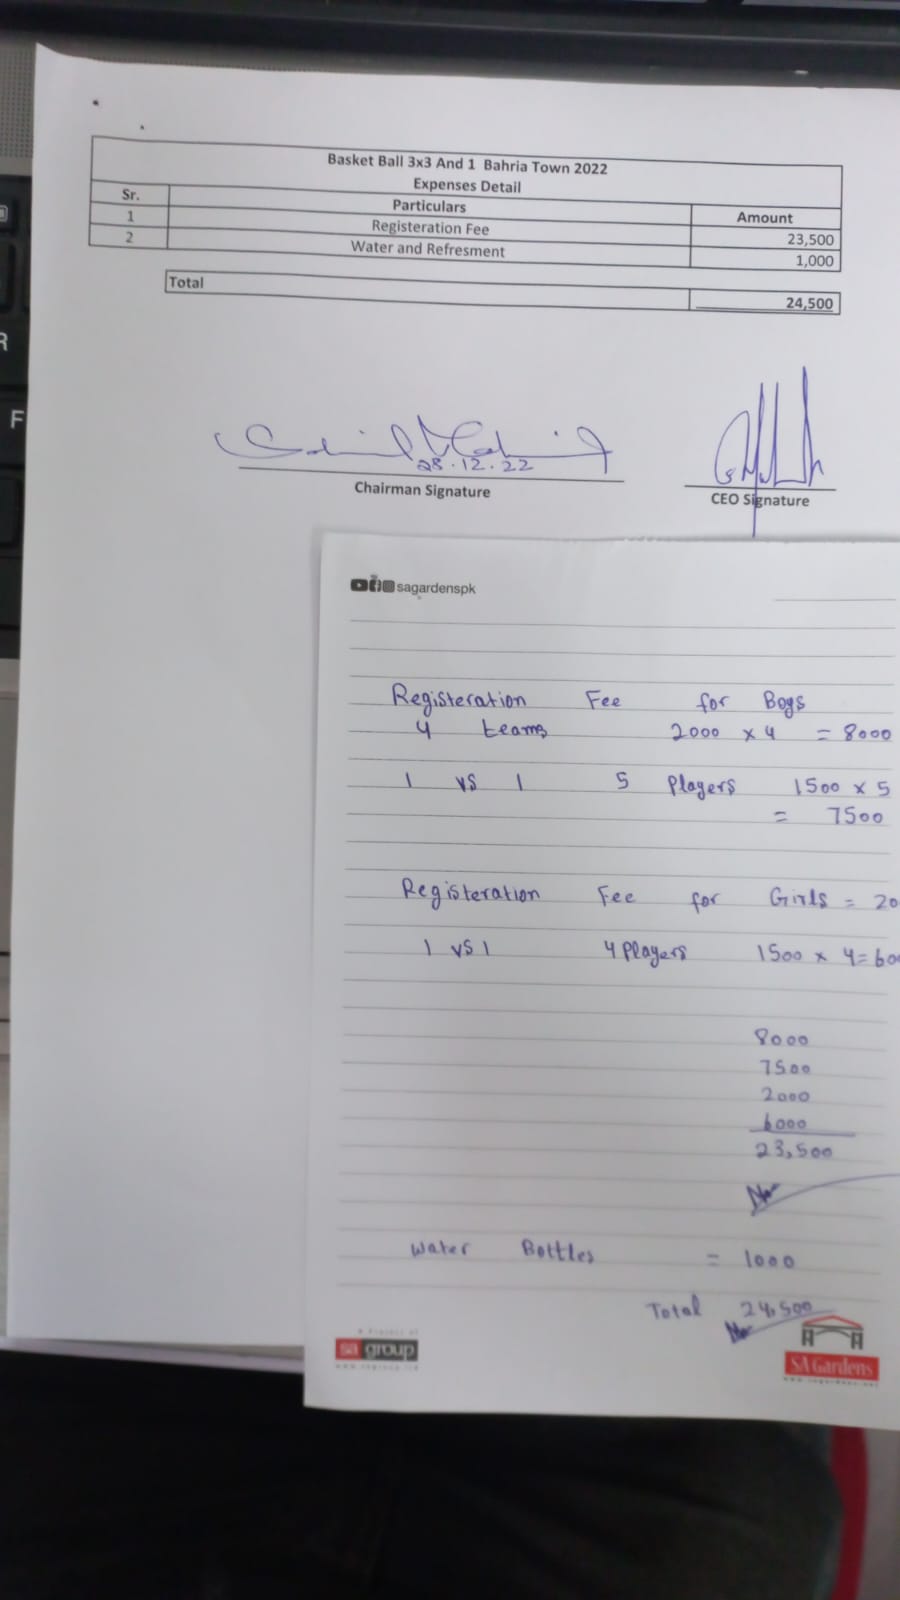 Basket Ball 3x3 And 1 Bahria Town 2022
Expenses Detail
Sr. Particulars Amount
1 Registeration Fee 23,500
2 Water and Refresment 1,000
Total 24,500
28.12.22
Chairman Signature
CEO Signature
sagardenspk
Registeration Fee for Boys
4 teams 2000 x 4 = 8000
1 vs 1 5 Players 1500 x 5
= 7500
Registeration Fee for Girls = 20
1 vs 1 4 Players 1500 x 4 = 600
8000
7500
2000
6000
23,500
Water Bottles = 1000
Total 24,500
sa group
SA Gardens
R
F